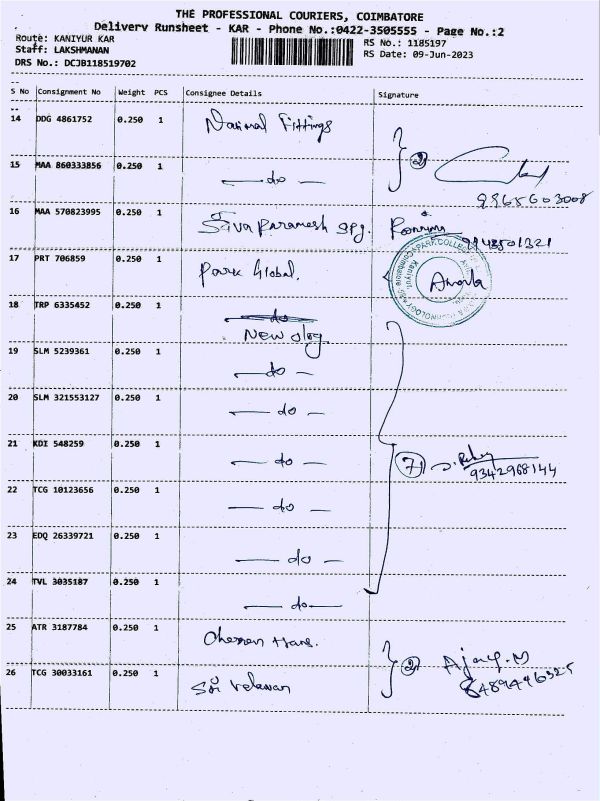 THE PROFESSIONAL COURIERS, COIMBATORE
Delivery Runsheet - KAR - Phone No.:0422-3505555 - Page No.:2
Route: KANIYUR KAR
RS No.: 1185197
Staff: LAKSHMANAN
RS Date: 09-Jun-2023
DRS No.: DCJB118519702
S No Consignment No Weight PCS Consignee Details Signature
14 DDG 4861752 0.250 1 National Fittings
15 MAA 860333856 0.250 1 — do — } 2
9965603008
16 MAA 570823995 0.250 1 Siva Paramesh spg.
9148501321
17 PRT 706859 0.250 1 Park Global.
18 TRP 6335452 0.250 1 do
New
19 SLM 5239361 0.250 1 — do —
20 SLM 321553127 0.250 1 — do —
21 KDI 548259 0.250 1 — do — 7
9342968144
22 TCG 10123656 0.250 1 — do —
23 EDQ 26339721 0.250 1 — do —
24 TVL 3035187 0.250 1 — do —
25 ATR 3187784 0.250 1
26 TCG 30033161 0.250 1 Sri Velavan } 2 Ajay.M